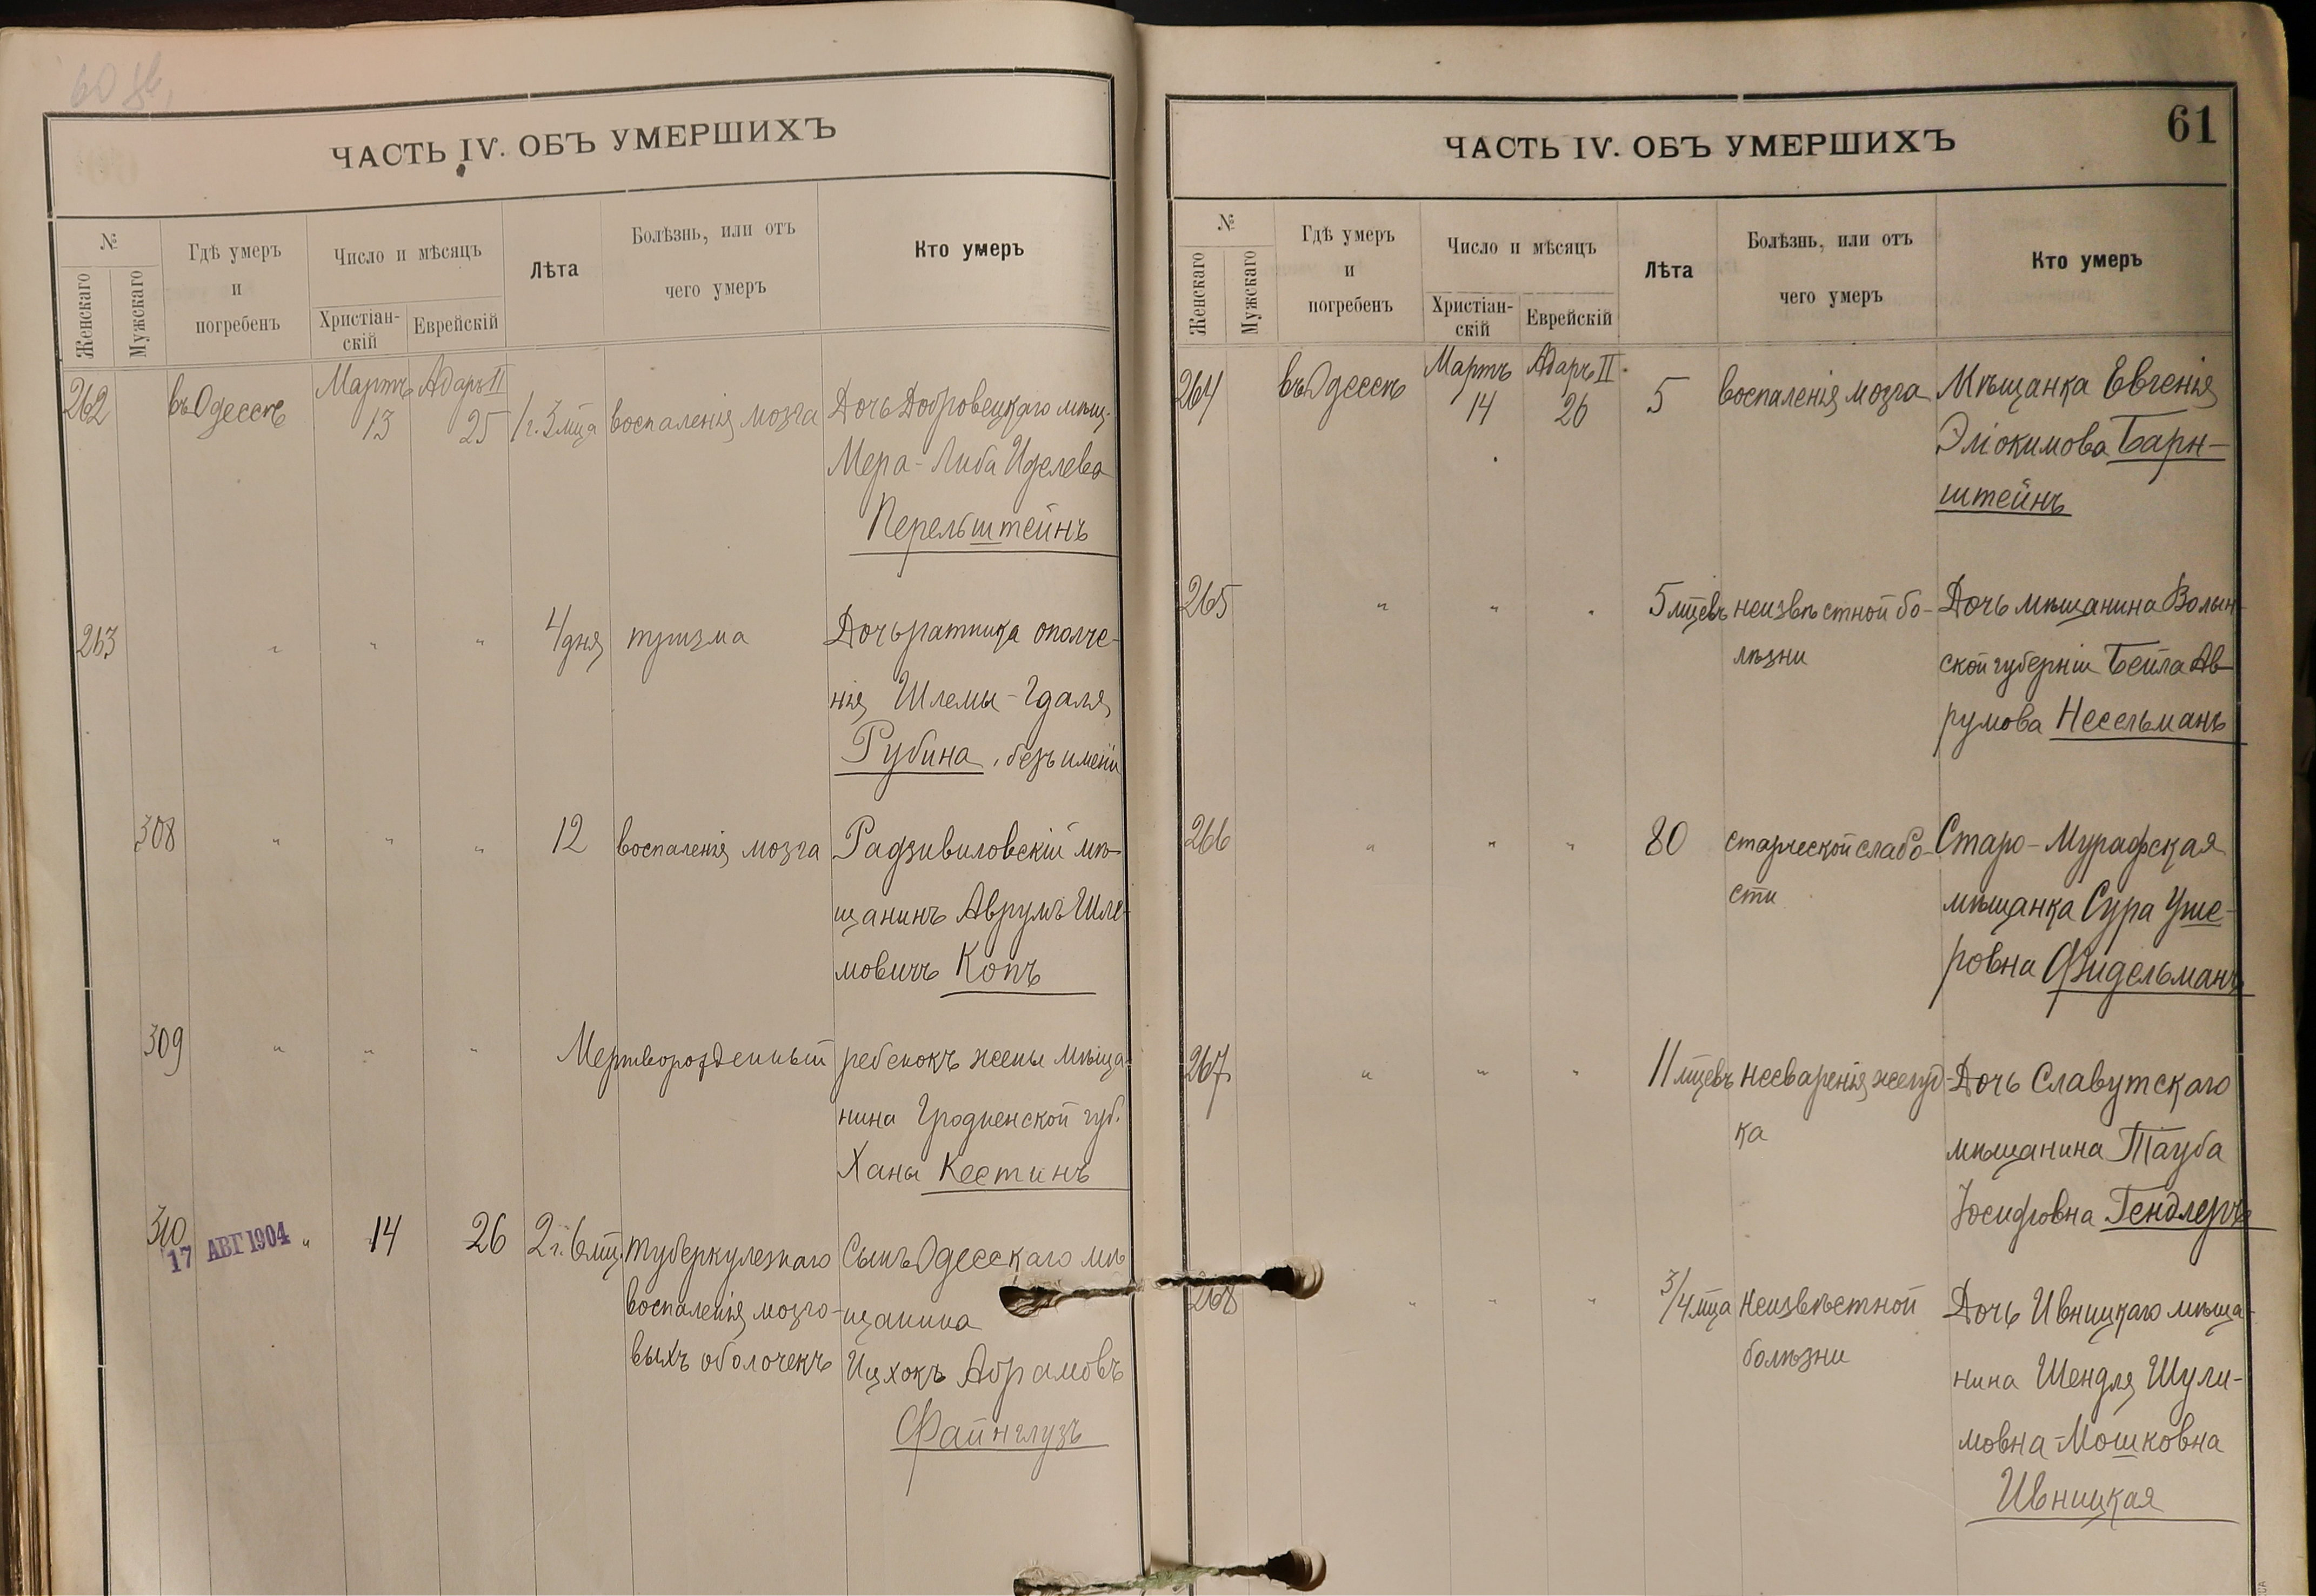 60 об.
ЧАСТЬ IV. ОБЪ УМЕРШИХЪ
№
Женскаго
Мужскаго
Гдѣ умеръ
и
погребенъ
Число и мѣсяцъ
Христіан-
скій
Еврейскій
Лѣта
Болѣзнь, или отъ
чего умеръ
Кто умеръ
262 въ Одессѣ Мартъ 13 Адаръ II 25 1 г. 3 мца воспаленія мозга Дочь Добровецкаго мѣщ.
Мера-Либа Иделева
Перельштейнъ
263 " " " 4 дня тризма Дочь ратника ополче-
нія Шлемы-Гдаля
Рубина, безъ имени
308 " " " 12 воспаленія мозга Радзивиловскій мѣ-
щанинъ Аврумъ Шле-
мовичъ Копъ
309 " " " Мертворожденный ребенокъ жены мѣща-
нина Гродненской губ.
Ханы Кестинъ
310 " 14 26 2 г. 6 мц. туберкулезнаго Сынъ Одесскаго мѣ
17 АВГ 1904
воспаленія мозго- щанина
выхъ оболочекъ Ицхокъ Абрамовъ
Файнглузъ
ЧАСТЬ IV. ОБЪ УМЕРШИХЪ
61
№
Женскаго
Мужскаго
Гдѣ умеръ
и
погребенъ
Число и мѣсяцъ
Христіан-
скій
Еврейскій
Лѣта
Болѣзнь, или отъ
чего умеръ
Кто умеръ
264 въ Одессѣ Мартъ 14 Адаръ II 26 5 воспаленія мозга Мѣщанка Евгенія
Эліокимова Барн-
штейнъ
265 " " " 5 мцевъ неизвѣстной бо- Дочь мѣщанина Волын-
лѣзни ской губерніи Бейла Ав-
румова Несельманъ
266 " " " 80 старческой слабо- Старо-Мурафская
сти мѣщанка Сура Уше-
ровна Фидельманъ
267 " " " 11 мцевъ несваренія желуд- Дочь Славутскаго
ка мѣщанина Тауба
Іосифовна Гендлеръ
268 " " " 3/4 мца неизвѣстной Дочь Ивницкаго мѣща-
болѣзни нина Шендля Шули-
мовна-Мошковна
Ивницкая